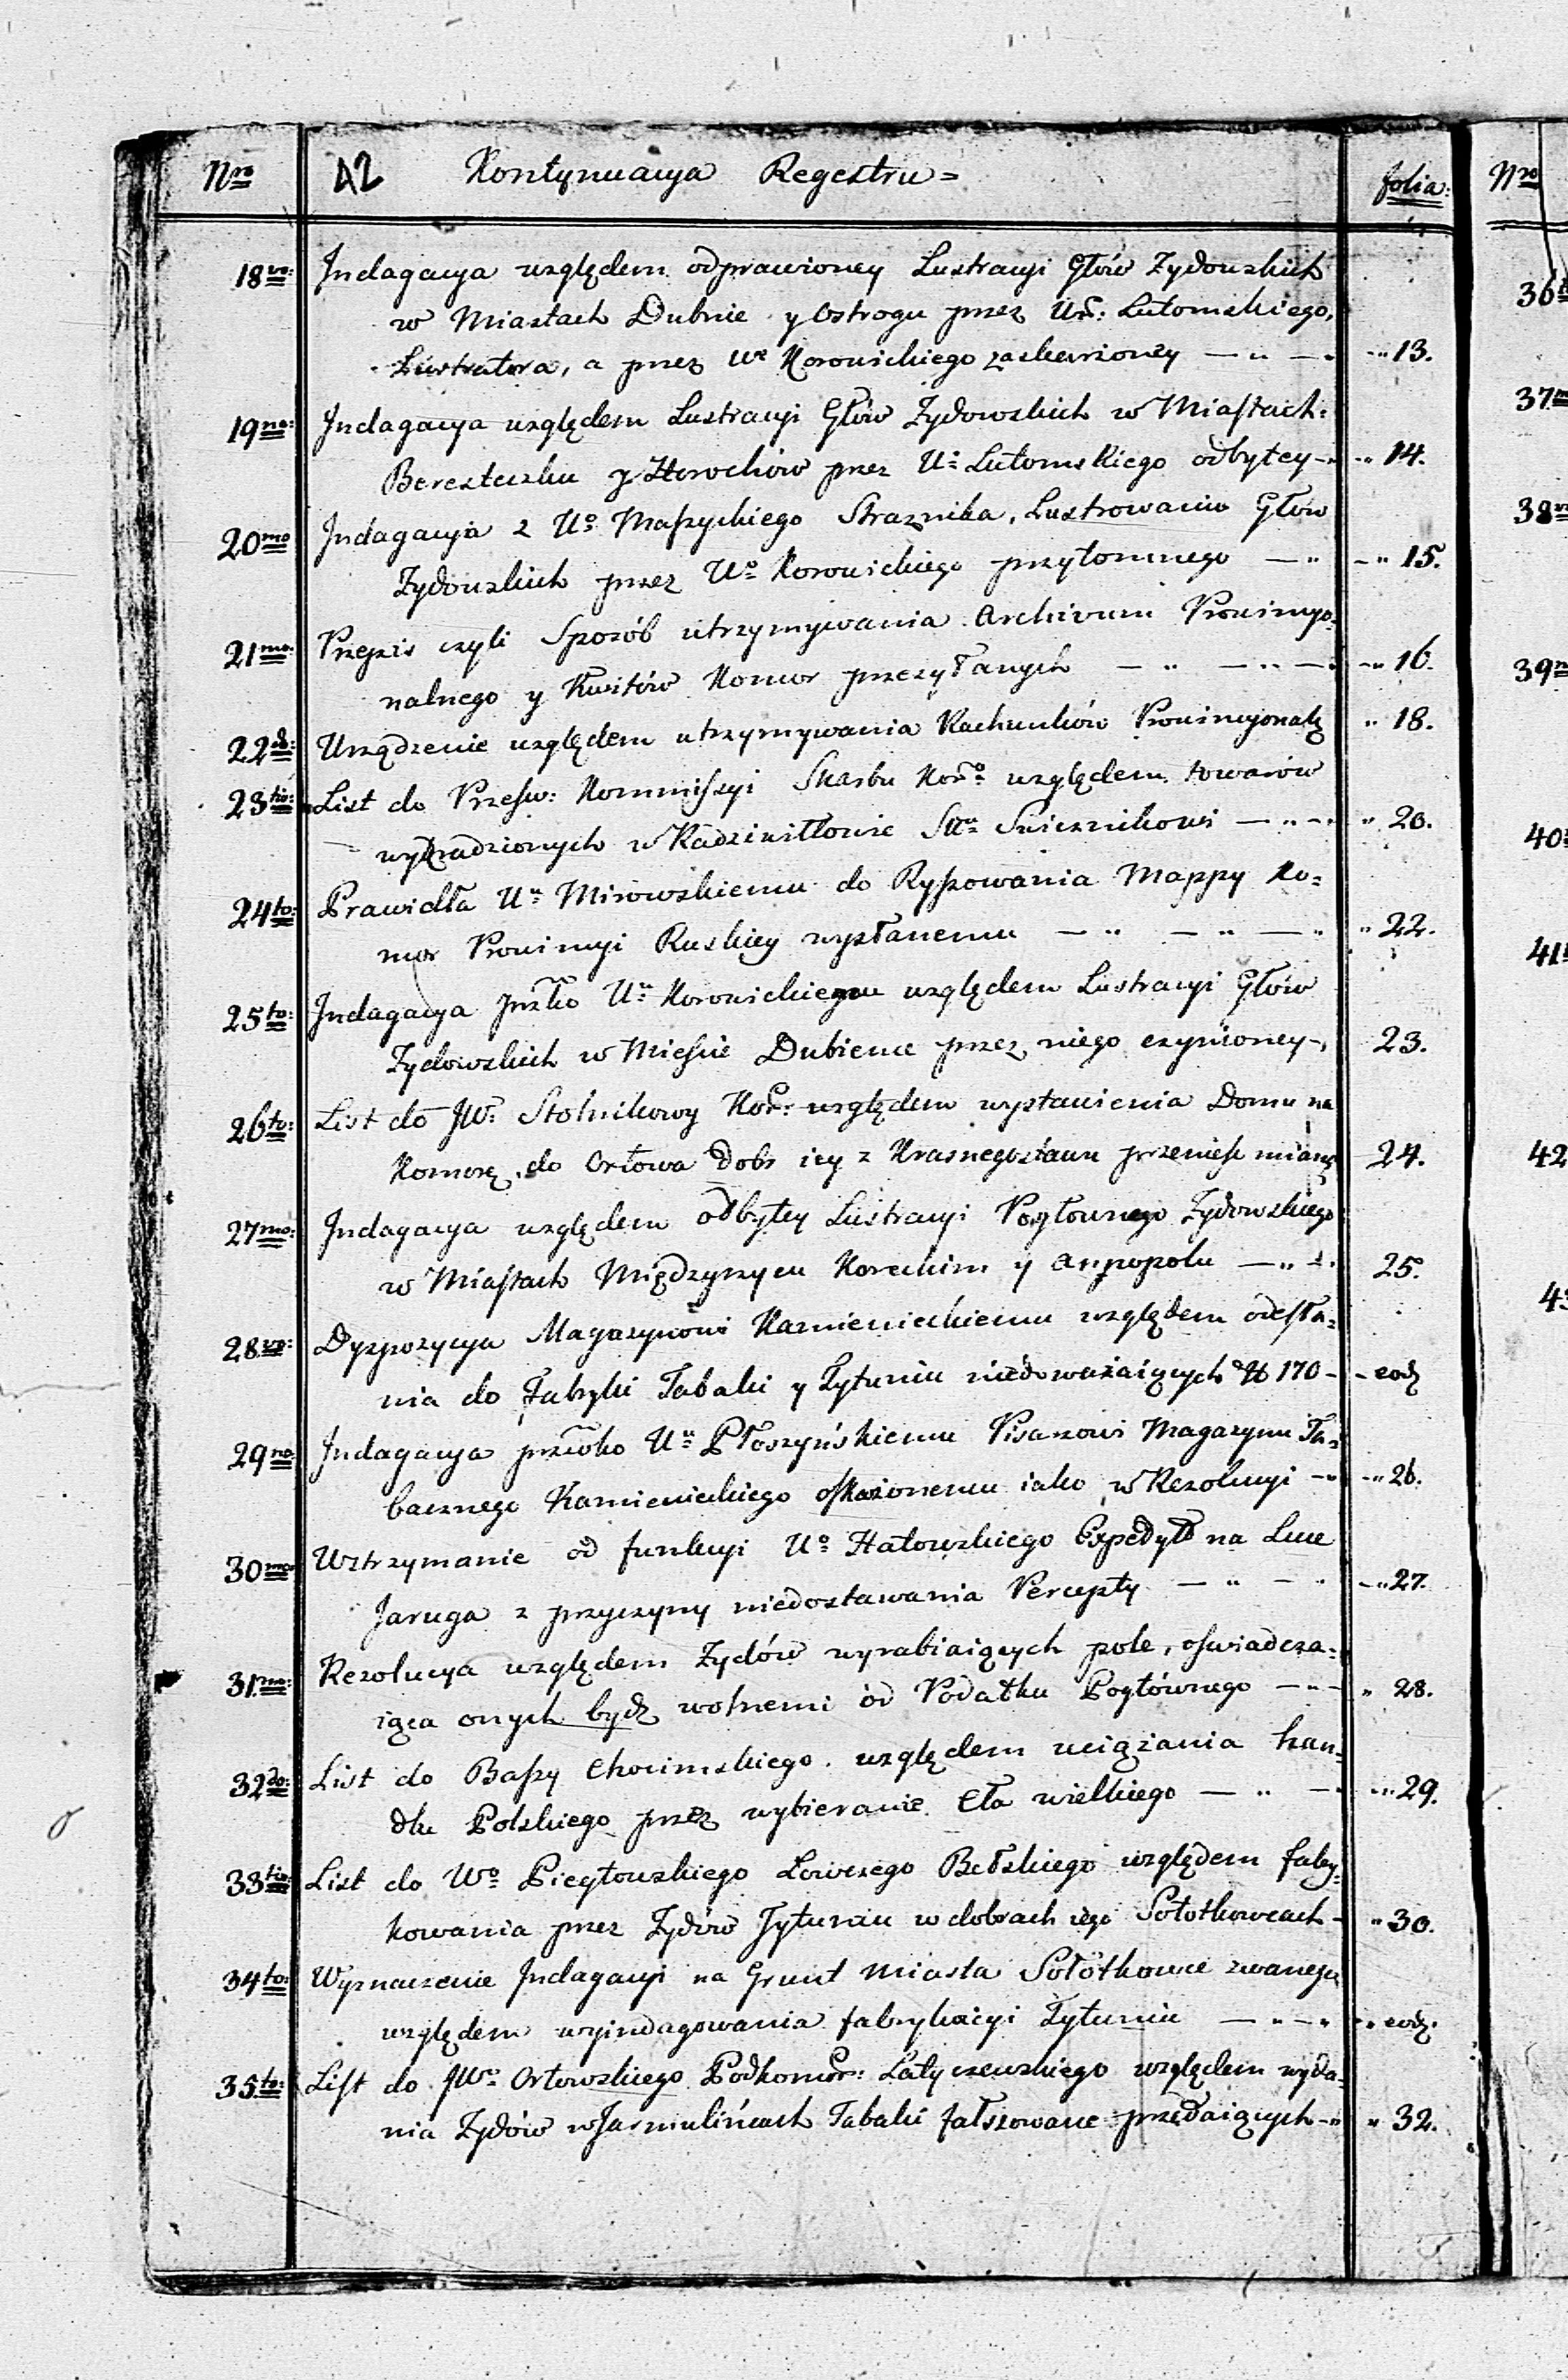 Nro 42 Kontynuacya Regestru = folia: Nro
18vo: Indagacya względem odprawioney Lustracyi Głów Zydowskich
w Miastach Dubnie y Ostrogu przez Ur: Lutomskiego,
Lustratora, a przez Uo Korowickiego zaskarzoney — „ — „ 13.
19no: Indagacya względem Lustracyi Głów Zydowskich w Miastach:
Beresteczku y Horochów przez Uo Lutomskiego odbytey — „ 14.
20mo Indagacyia z Uo Maszyckiego Straznika, Lustrowaniu Głów
Zydowskich przez Uo Korowickiego przytomnego — „ — „ 15.
21mo: Przepis czyli Sposób utrzymywania Archivum Prowincyo-
nalnego y Kwitów Komor przezyłanych — „ — „ — „ 16.
22do: Urządzenie względem utrzymywania Rachunków Prowincyonalz „ 18.
23tio: List do Przesw: Kommiszyi Skarbu Koro względem towarów
wykradzionych w Radziwiłłowie Sttu Snieznikowi — „ — „ 20.
24to: Prawidła Uu Mirowskiemu do Ryszowania Mappy Ko=
mor Prowincyi Ruskiey wysłanemu — „ — „ — „ 22.
25to: Indagacya przko Uu Korowickiemu względem Lustracyi Głów
Zydowskich w Mieście Dubience przez niego czynioney —, 23.
26to: List do JW: Stolnikowy Kor: względem wystawienia Domu na
Komorę do Orłowa dobr iey z Krasnegostawu przenieść mianą 24.
27mo: Indagacya względem odbytey Lustracyi Pogłownego Zydowskiego
w Miastach Międzyrzycu Koreckim y Annopolu — „ — 25.
28vo: Dyspozycya Magazynowi Kamienieckiemu względem odesła=
nia do Fabryki Tabaki y Tytuniu niedoważaiących ℔ 170 — eodz
29no Indagacya przwko Uu Płoszyńskiemu Pisarzowi Magazynu Ta=
bacznego Kamienieckiego oskarżonemu iako w Rezolucyi — „ 26.
30mo Wstrzymanie od funkcyi Uo Hatowskiego Expedyt na Lucie
Jaruga z przyczyny niedostawania Percepty — „ — „ 27.
31mo: Rezolucya względem Zydów wyrabiaiących pole, oswiadcza-
iąca onych bydz wolnemi od Podatku Pogłównego — „ — „ 28.
32do: List do Baszy Chocimskiego względem uciążania han-
dlu Polskiego przez wybieranie Cła wielkiego — „ — „ 29.
33tio List do Wo Piegłowskiego Łowczego Bełskiego względem fabry-
kowania przez Zydów Tytuniu w dobrach iego Sołotkowcach — „ 30.
34to: Wyznaczenie Indagacyi na Grunt miasta Sołotkowce zwanego
względem wyindagowania fabrykacyi Tytuniu — „ — „ eodz.
35to: List do JWo Orłowskiego Podkomor: Latyczewskiego względem wyda-
nia Zydów w Jarmolińcach Tabaki fałszowane przedaiących — „ 32.
36
37
38
39
40
41
42